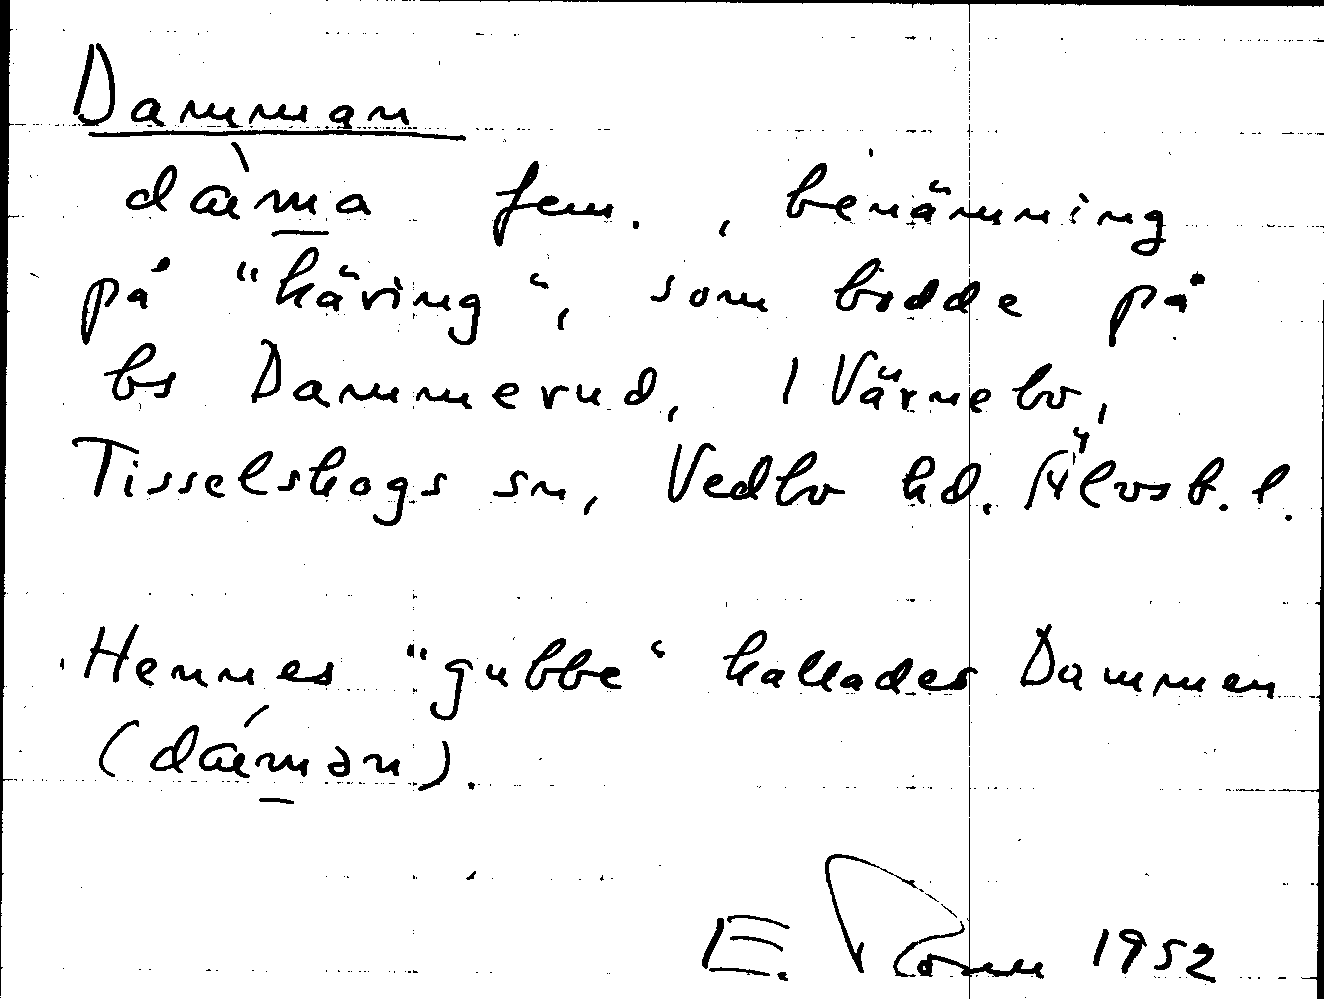 Damman
dæ̀m̲a fem., benämning
på "käring", som bodde på
bs Dammerud, 1 Värnebo,
Tisselskogs sn, Vedbo hd. Älvsb. l.
Hennes "gubbe" kallades Dammen
(dǽm̲ən).
E. 1952